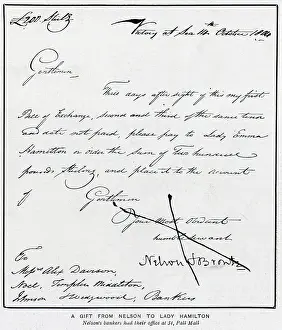 £200 Stg
Victory at Sea 14th October 1804
Gentlemen
Three days after sight of this my first
Pace of Exchange, second and third of the same tenor
and date not paid, please pay to Lady Emma
Hamilton or order the sum of Two hundred
pounds sterling, and place it to the account
of Gentlemen
Your most obedient
humble servant
Nelson & Bronte
To
Messrs Alexr Davison,
Noel, Templer Middleton,
Johnson Wedgwood, Bankers
A GIFT FROM NELSON TO LADY HAMILTON
Nelson's bankers had their office at 34, Pall Mall